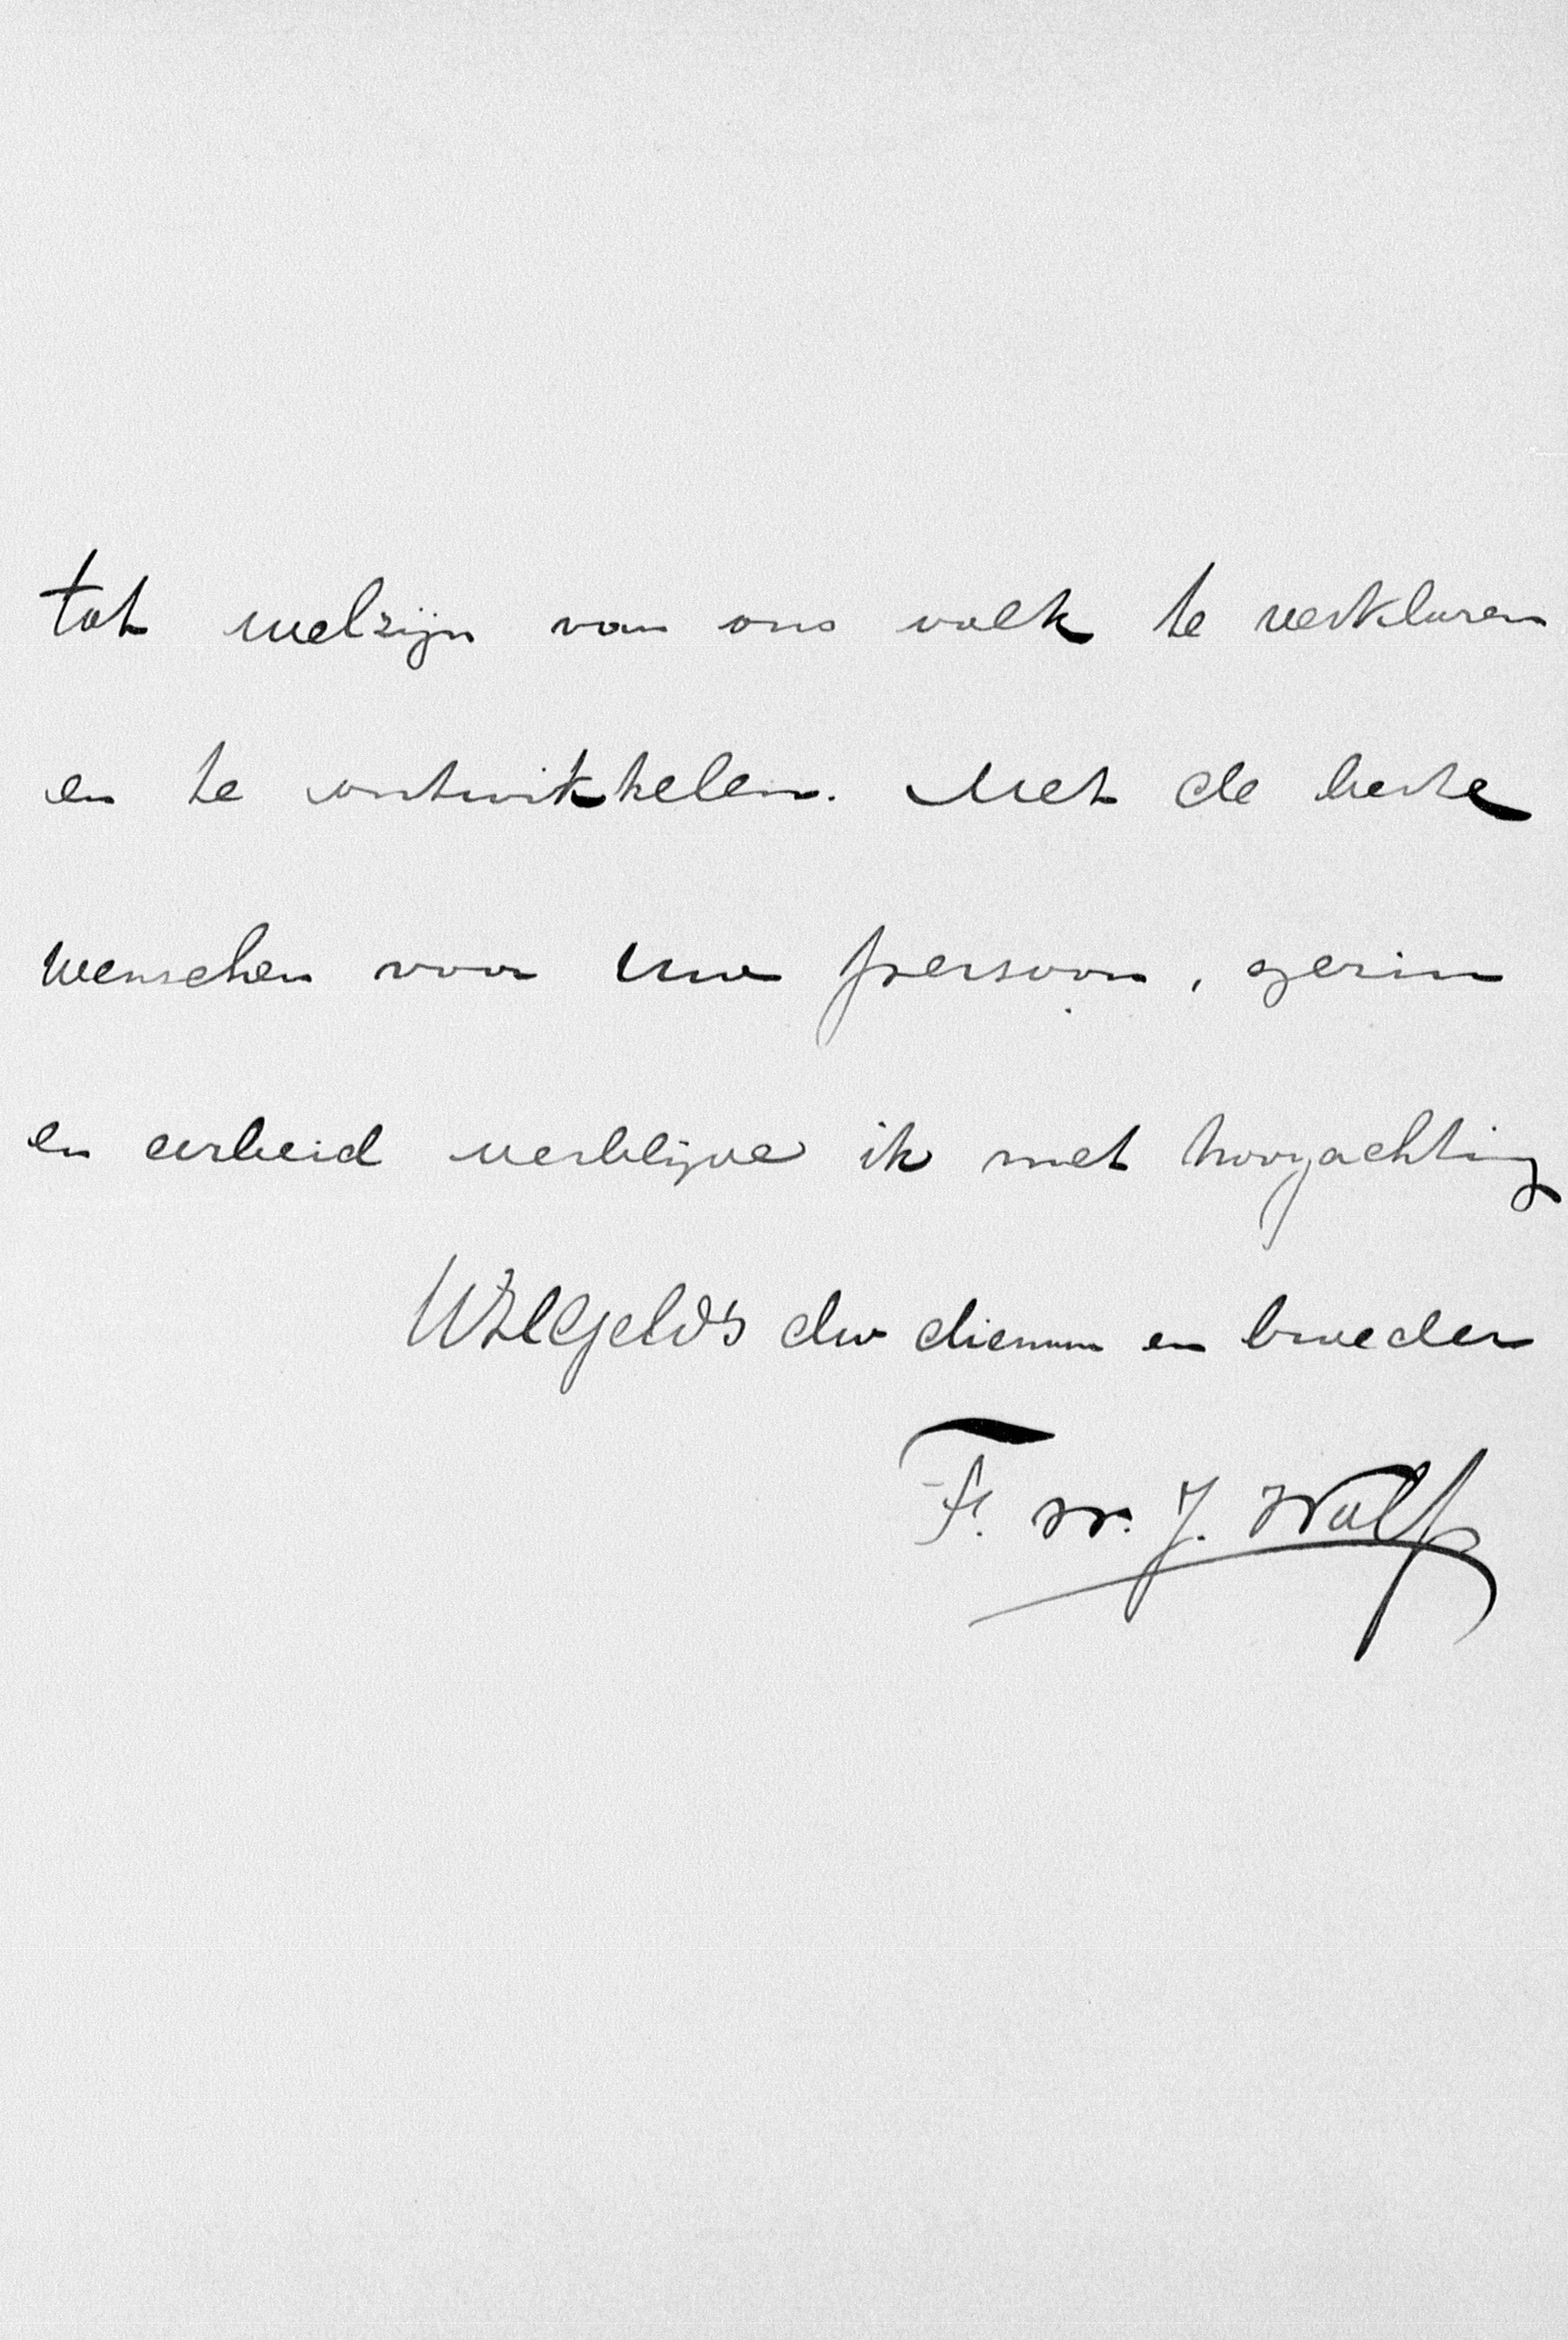 tot welzijn van ons volk te verklaren
en te ontwikkelen. Met de beste
wenschen voor Uw persoon, gezin
en arbeid verblijve ik met hoogachting
UZEGeld's dw dienaar en broeder
F. W. J. Wolf